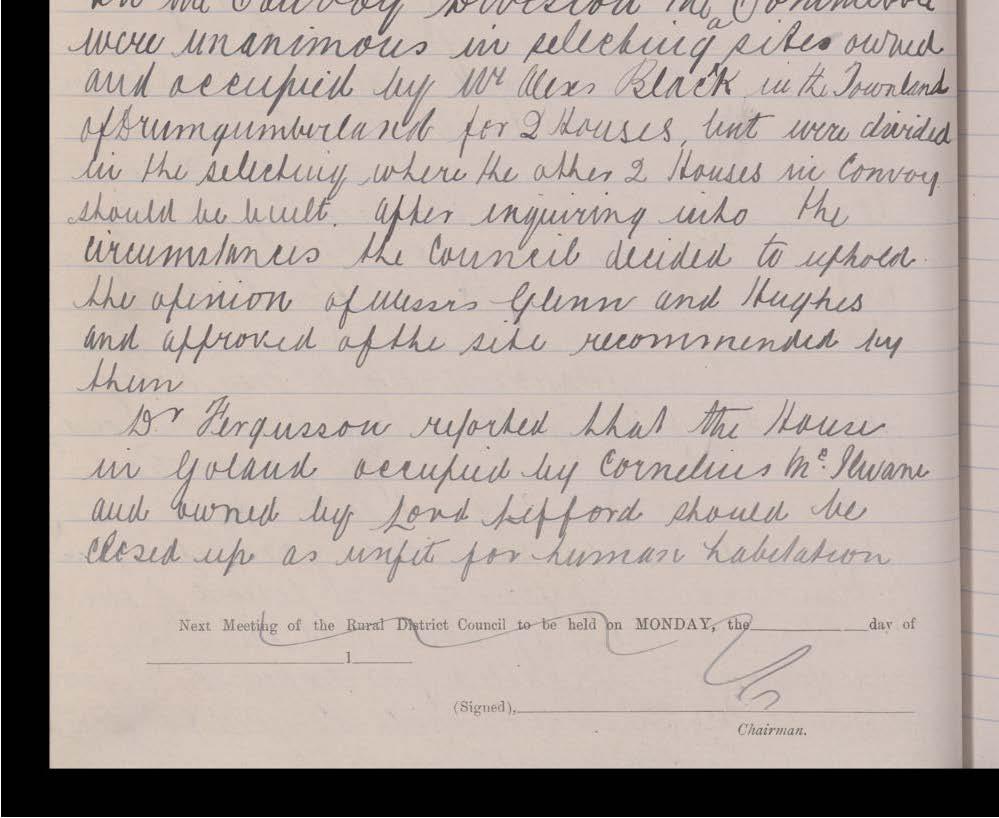 In the Convoy Division the Committee
were unanimous in selecting a sites owned
and occupied by Mr Alexr Black in the Townland
of Drumgumberland for 2 Houses, but were divided
in the selecting where the other 2 Houses in Convoy
should be built. After inquiring into the
circumstances the Council decided to uphold
the opinion of Messrs Glenn and Hughes
and approved of the site recommended by
them
Dr Fergusson reported that the House
in Goland occupied by Cornelius Mc Ilwane
and owned by Lord Lifford should be
closed up as unfit for human habitation
Next Meeting of the Rural District Council to be held on MONDAY, the____________day of
____________________1______
(Signed),____________________
Chairman.